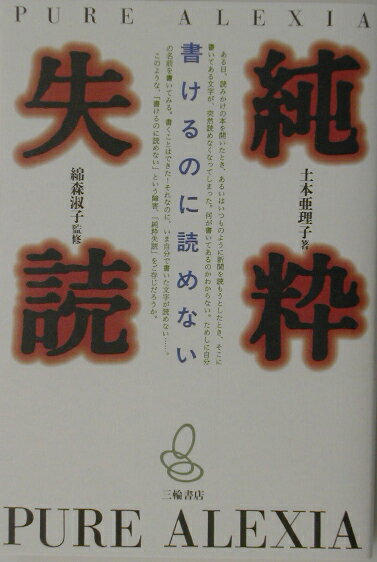 PURE ALEXIA
純粋
失読
土本亜理子著
綿森淑子監修
書けるのに読めない
ある日、読みかけの本を開いたとき、あるいはいつものように新聞を読もうとしたとき、そこに
書いてある文字が、突然読めなくなってしまった。何が書いてあるのかわからない。ためしに自分
の名前を書いてみる。書くことはできた！それなのに、いま自分で書いた文字が読めない……。
このような、「書けるのに読めない」という障害、「純粋失読」をご存じだろうか。
三輪書店
PURE ALEXIA